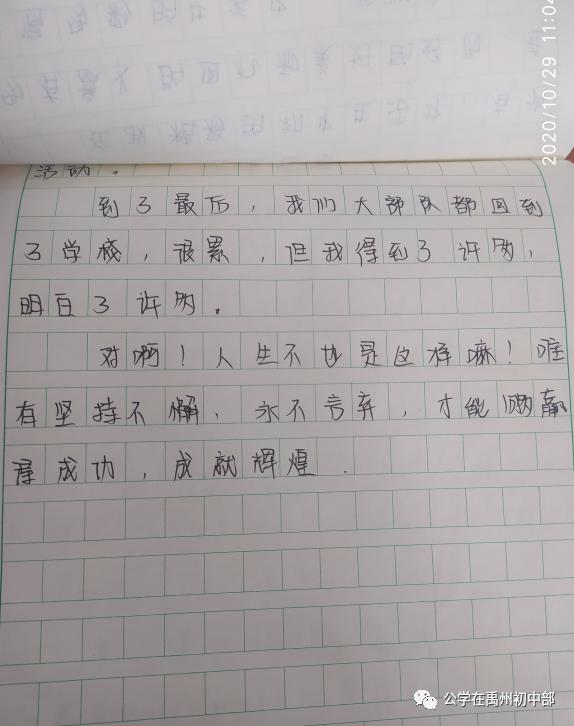 2020/10/29 11:04
活动。
到了最后，我们大部队都回到
了学校，很累，但我得到了许多，
明白了许多。
对啊！人生不也是这样嘛！唯
有坚持不懈、永不言弃，才能赢
得成功，成就辉煌.
公学在禹州初中部